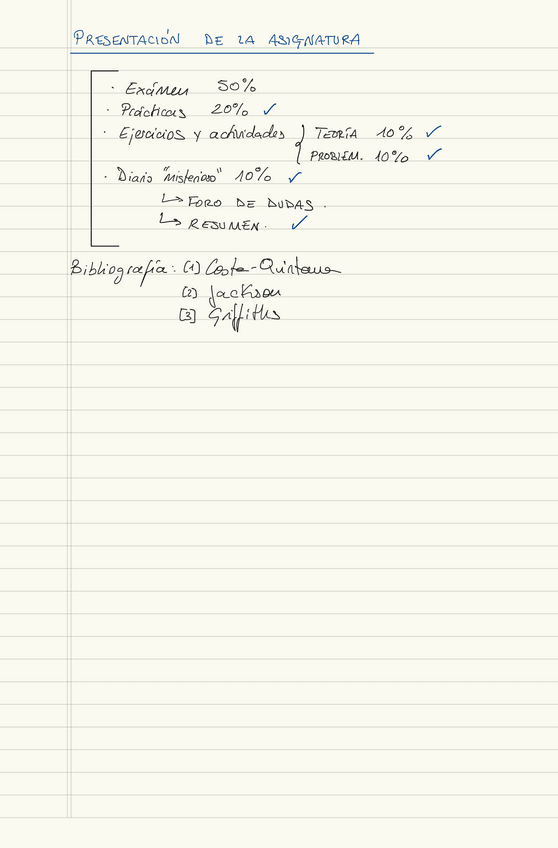 PRESENTACIÓN DE LA ASIGNATURA
· Exámen 50%
· Prácticas 20% ✓
· Ejercicios y actividades } TEORÍA 10% ✓
PROBLEM. 10% ✓
· Diario "misterioso" 10% ✓
↳ FORO DE DUDAS.
↳ RESUMEN. ✓
Bibliografía: (1) Costa-Quintana
(2) Jackson
[3] Griffiths